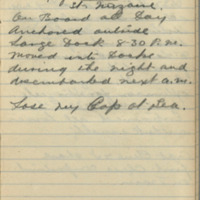 St. Nazaire.
On Board all Day
Anchored outside
Large Dock 8-30 P.m.
Moved into Locks
during the night and
disembarked next a.m.
Lose my Cap at Sea.